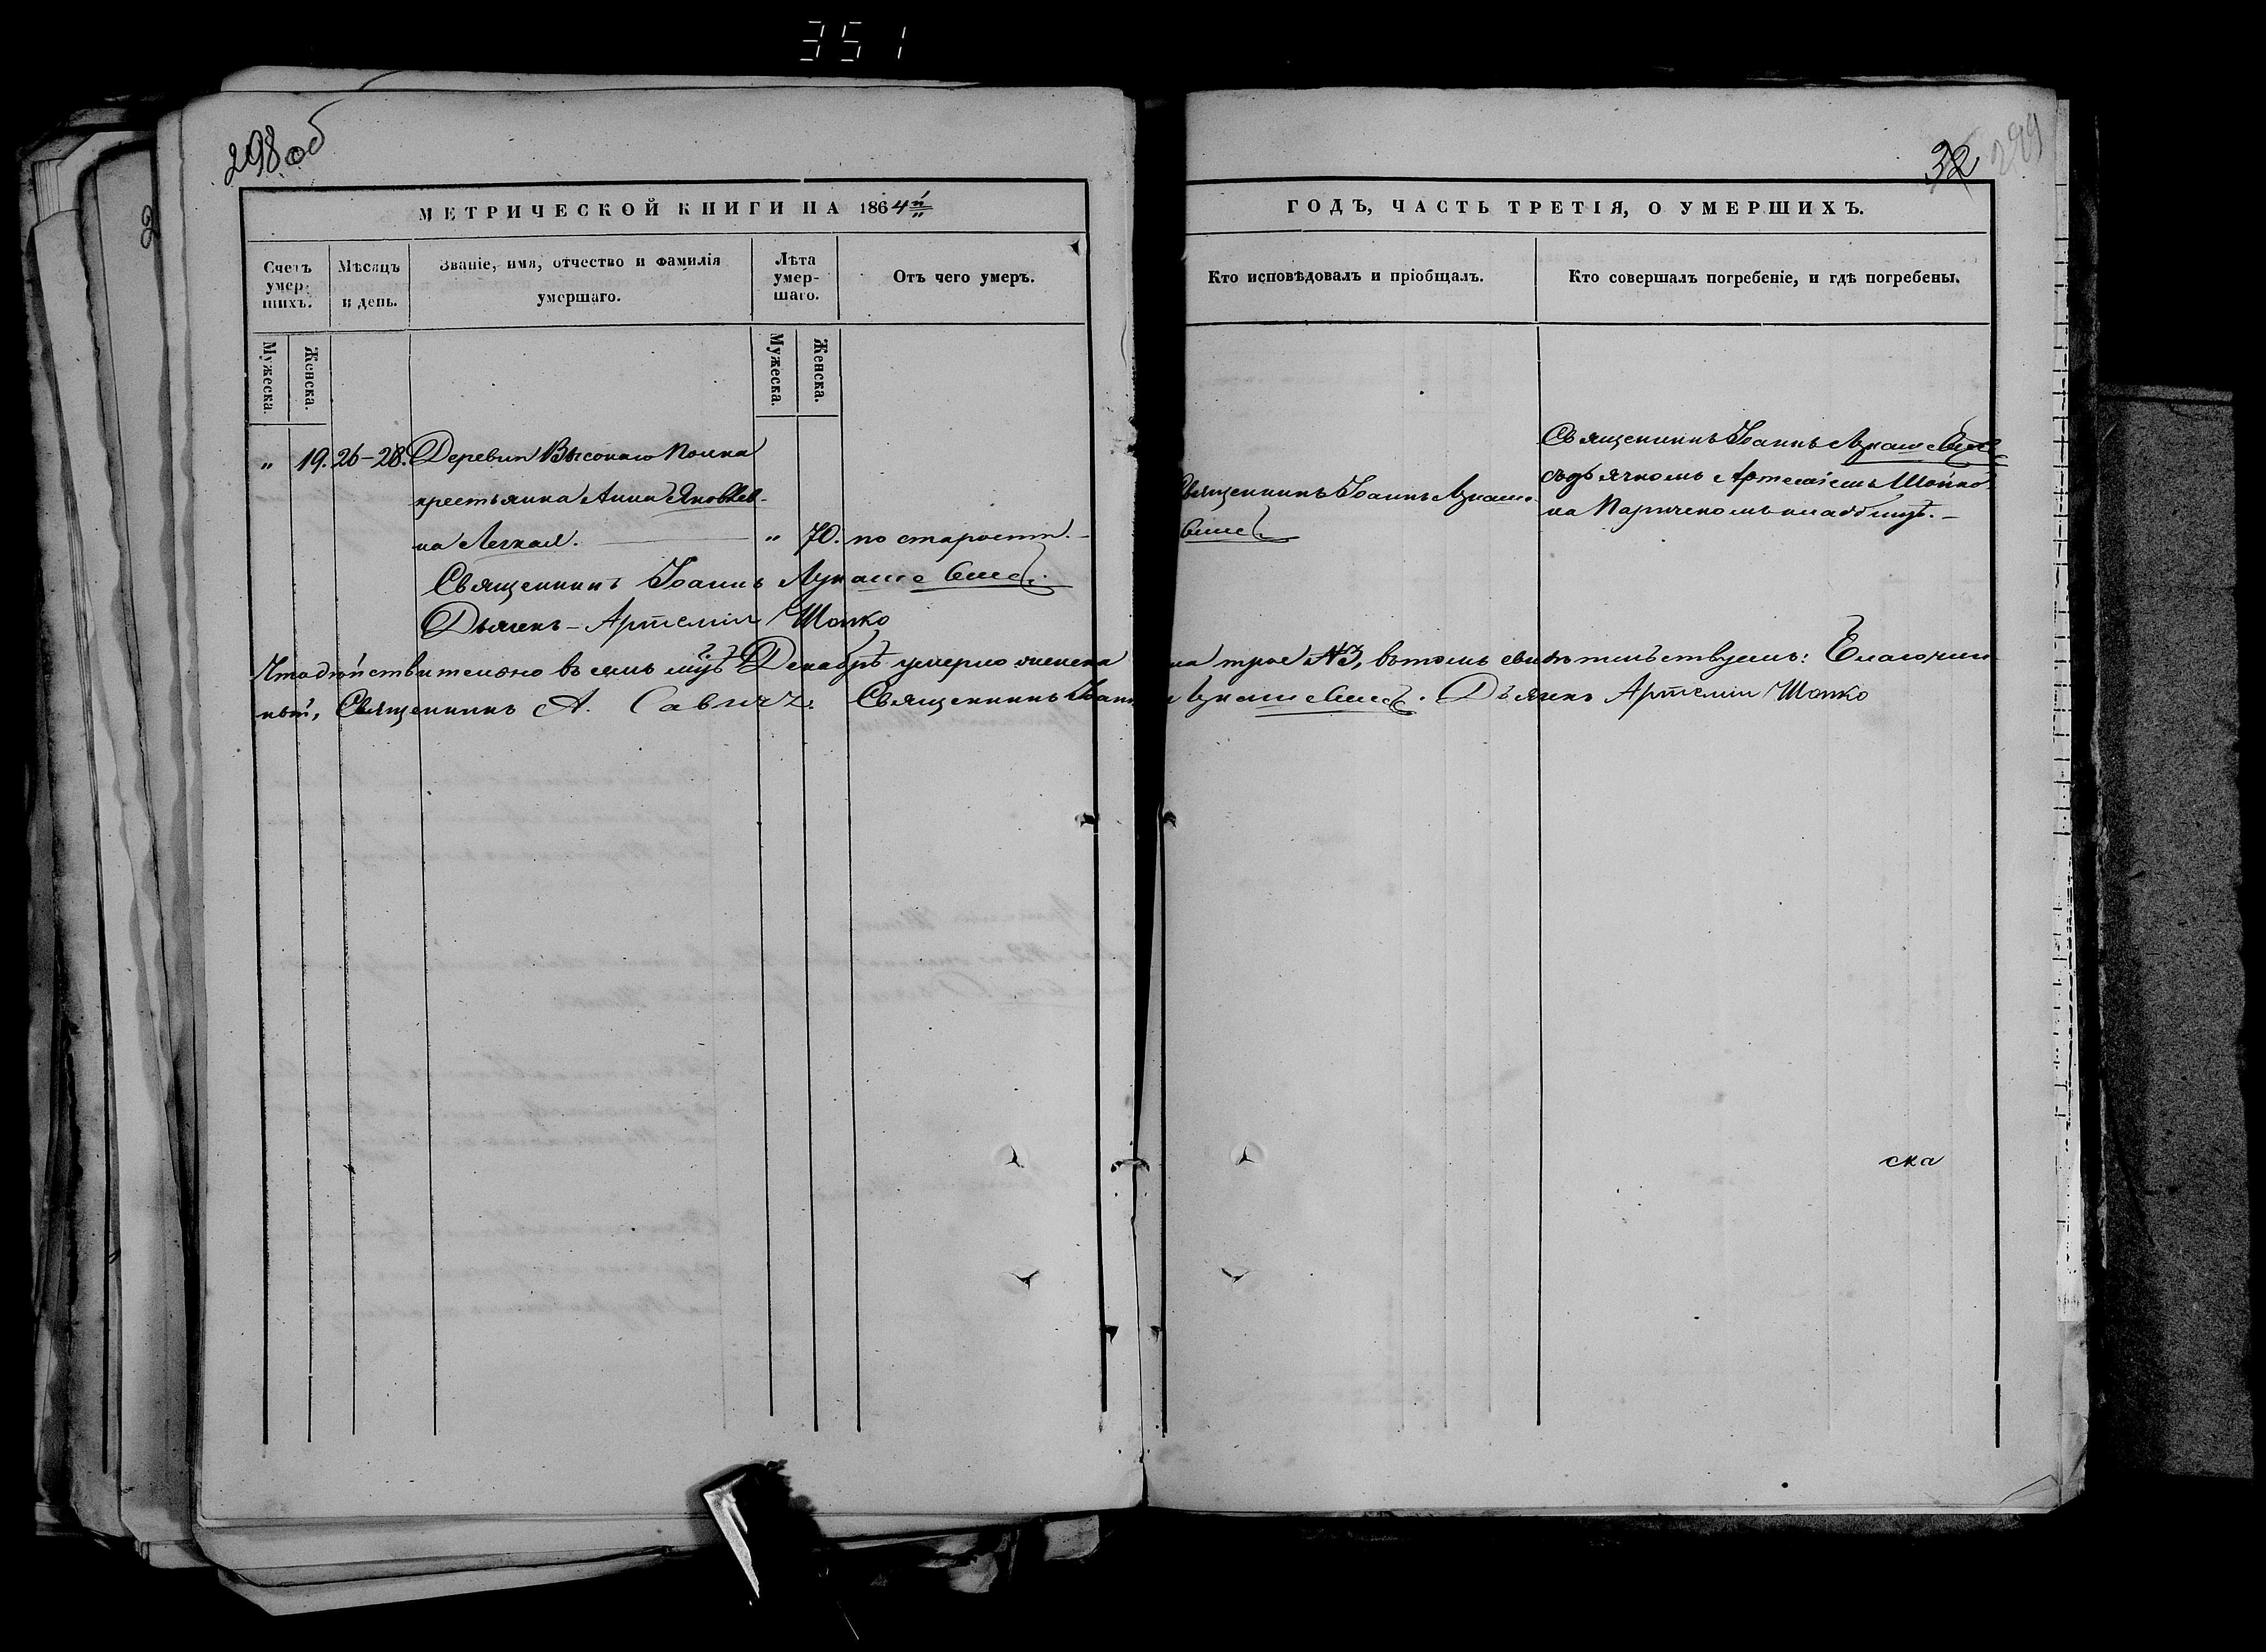 351
298 об
32
299
МЕТРИЧЕСКОЙ КНИГИ НА 1864й
ГОДЪ, ЧАСТЬ ТРЕТІЯ, О УМЕРШИХЪ.
Счетъ умер-
шихъ.
Мѣсяцъ
и день.
Званіе, имя, отчество и фамилія
умершаго.
Лѣта
умер-
шаго.
Отъ чего умеръ.
Кто исповѣдовалъ и пріобщалъ.
Кто совершалъ погребеніе, и гдѣ погребены.
Мужеска.
Женска.
Мужеска.
Женска.
„ 19. 26-28. Деревни Высокаго Полка
крестьянка Анна Яковлев-
на Легкая. „ 70. по старости.
Священникъ Іоаннъ Лукаше-
вичъ
Священникъ Іоаннъ Лукашевичъ
съ дьячкомъ Артеміемъ Шопко
на Паричскомъ кладбищѣ.
Священникъ Іоаннъ Лукашевичъ.
Дьячекъ Артемій Шопко
Что дѣйствительно въ семъ мцѣ Декабрѣ умерло женска пола трое №3, въ томъ свидѣтельствуемъ: Благочин-
ный, Священникъ А. Савичъ. Священникъ Іоаннъ Лукашевичъ. Дьячекъ Артемій Шопко
ска